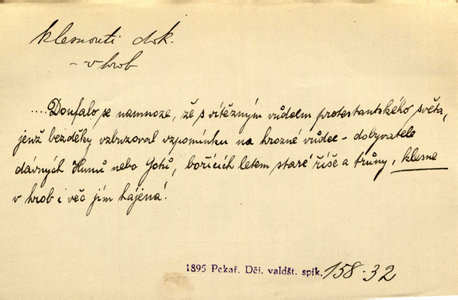 klesnouti dok.
- v hrob
....Doufalo se namnoze, že s vítězným vůdcem protestantského světa,
jenž bezděky vzbuzoval vzpomínku na hrozné vůdce - dobyvatele
dávných Hunů nebo Gotů, bořících letem staré říše a trůny, klesne
v hrob i věc jím hájená.
1895 Pekař. Děj. valdšt. spik. 158.32